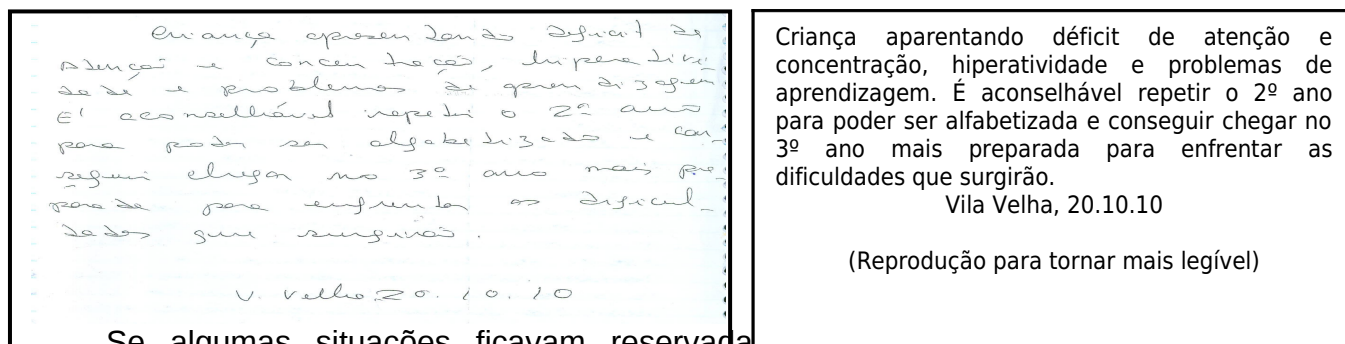 Criança apresentando deficit de
atenção e concentração, hiperativi-
dade e problemas de aprendizagem
E' aconselhável repetir o 2º ano
para poder ser alfabetizado e con-
seguir chegar no 3º ano mais pre-
parada para enfrentar as dificul-
dades que surgirão.
V. Velha 20.10.10
Criança aparentando déficit de atenção e
concentração, hiperatividade e problemas de
aprendizagem. É aconselhável repetir o 2º ano
para poder ser alfabetizada e conseguir chegar no
3º ano mais preparada para enfrentar as
dificuldades que surgirão.
Vila Velha, 20.10.10
(Reprodução para tornar mais legível)
Se algumas situações ficavam reservada